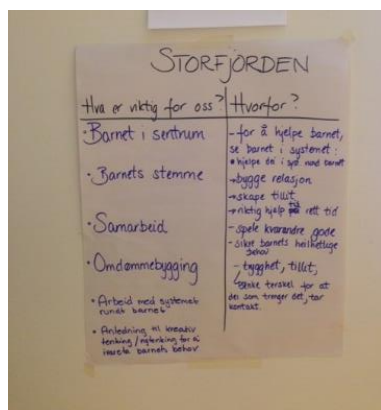 STORFJORDEN
Hva er viktig for oss?
• Barnet i sentrum
• Barnets stemme
• Samarbeid
• Omdømmebygging
• Arbeid med systemet
rundt barnet
• Anledning til kreativ
tenking/nytenking for å
ivareta barnets behov
Hvorfor?
- for å hjelpe barnet,
se barnet i systemet:
• hjelpe dei i syst. rundt barnet
→ bygge relasjon
→ skape tillit
→ riktig hjelp til rett tid
- spele kvarandre gode
- sikre barnets heilhetlige
behov
- trygghet, tillit,
senke terskel for at
dei som trenger det, tar
kontakt.